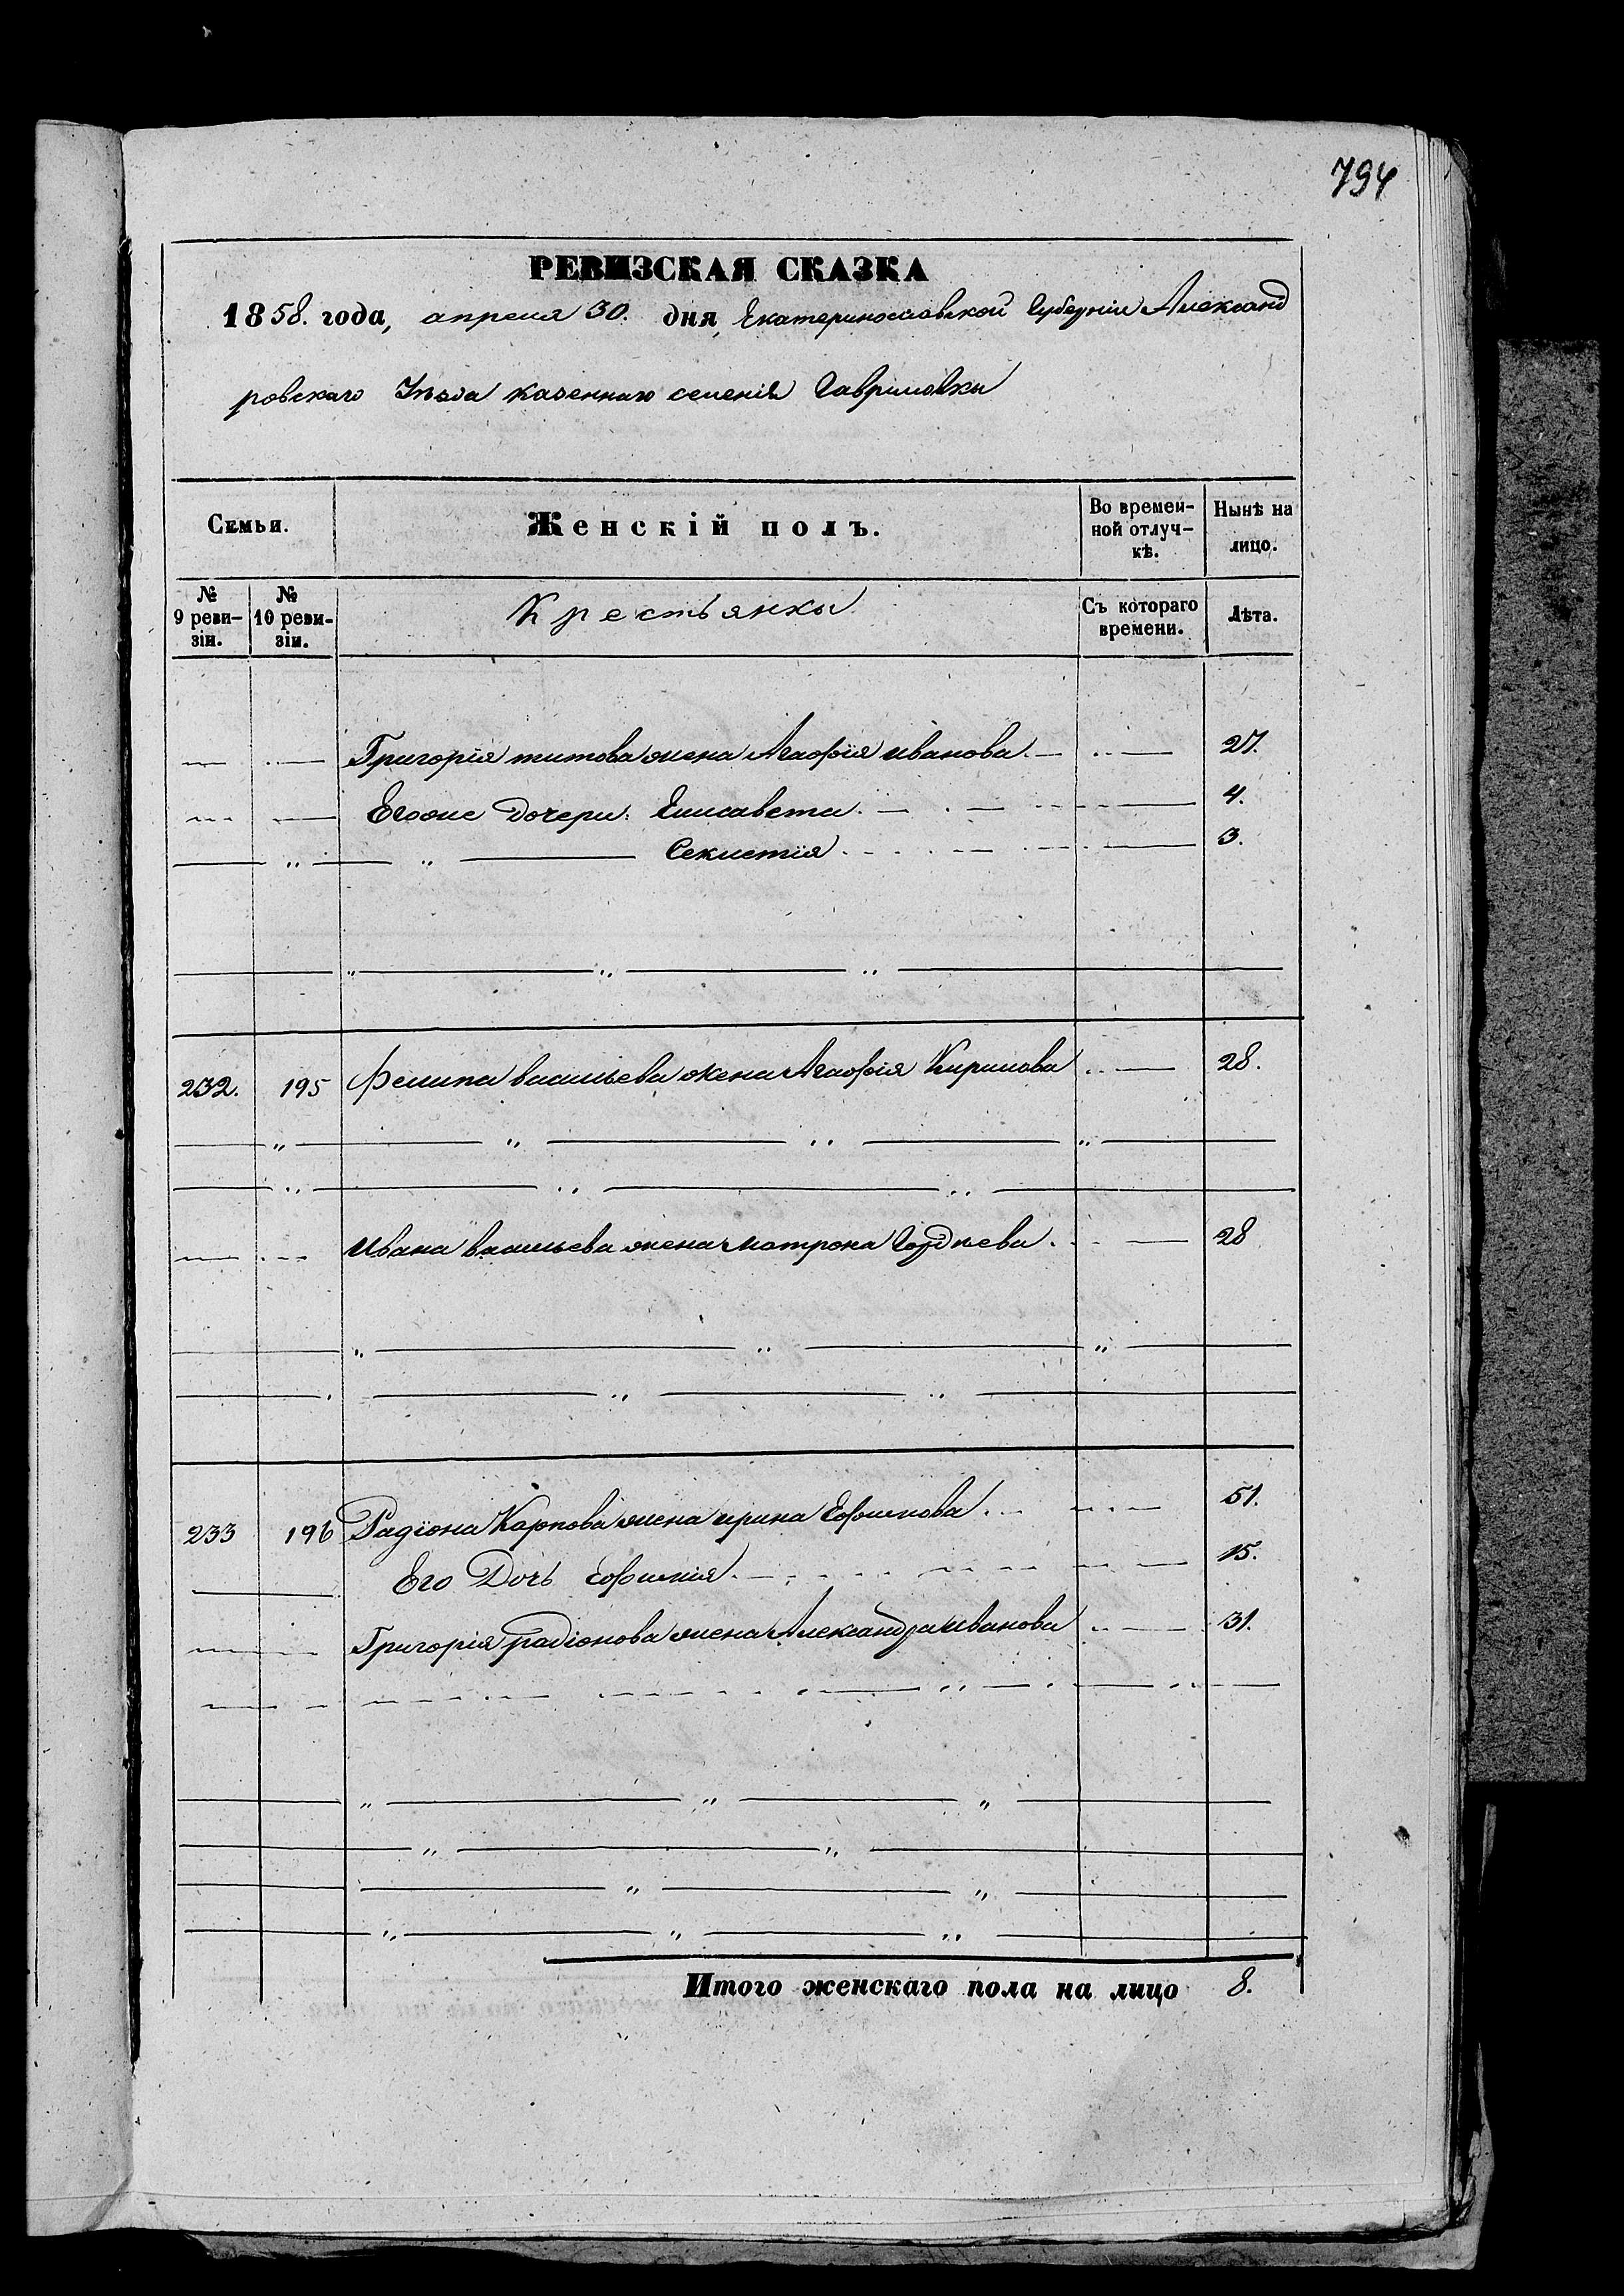 794
РЕВИЗСКАЯ СКАЗКА
1858. года, апреля 30. дня, Екатеринославской Губерніи Александ
ровскаго Уѣзда казеннаго селенія Гавриловки
Семьи.
Женскій полъ.
Во времен-
ной отлуч-
кѣ.
Нынѣ на
лицо.
№
9 реви-
зіи.
№
10 реви-
зіи.
Крестьянки
Съ котораго
времени.
Лѣта.
Григорія титова жена Агафія иванова 27.
Егоже Дочери: Елисавета 4.
Секлетія 3.
232. 195 Филипа васильева жена Агафія Кирилова 28.
Ивана васильева жена матрона Гордѣева 28
233 196 Радіона Карпова жена ирина Ефимова 51.
Его Дочь Ефимія 15.
Григорія радіонова жена Александра иванова 31.
Итого женскаго пола на лицо 8.